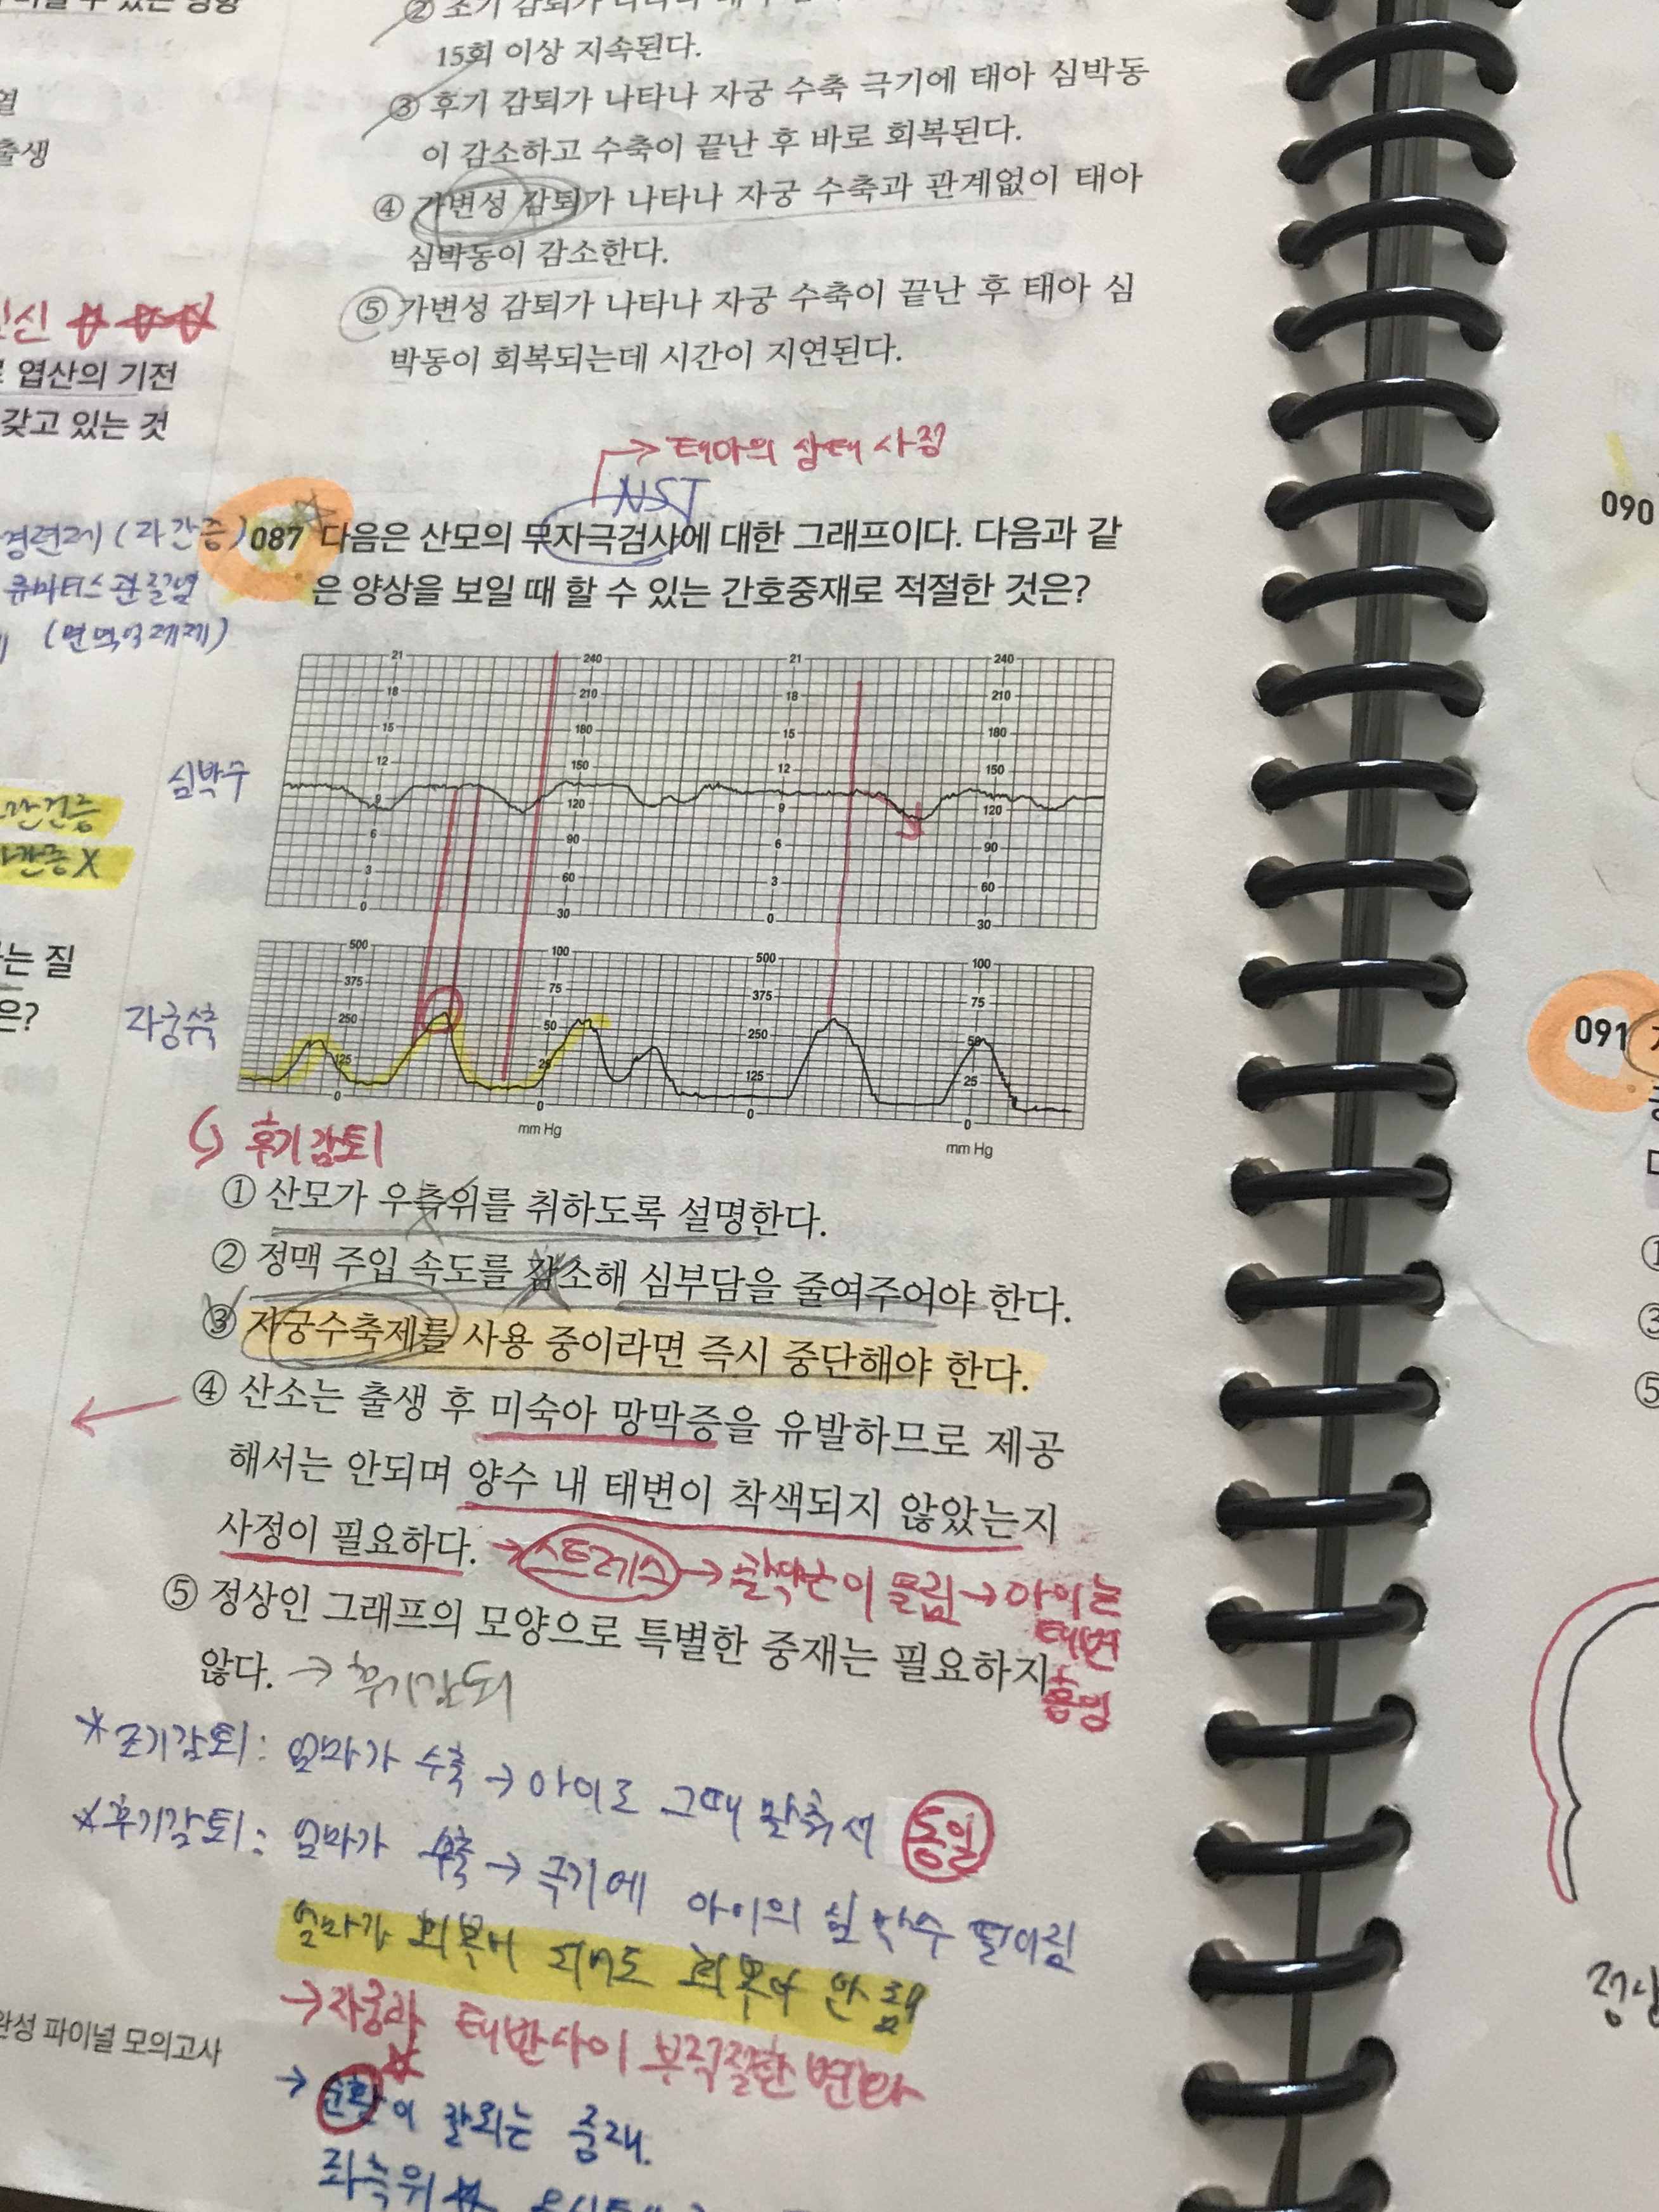 ② 조기 감퇴가 나타나
15회 이상 지속된다.
③ 후기 감퇴가 나타나 자궁 수축 극기에 태아 심박동
이 감소하고 수축이 끝난 후 바로 회복된다.
④ 가변성 감퇴가 나타나 자궁 수축과 관계없이 태아
심박동이 감소한다.
⑤ 가변성 감퇴가 나타나 자궁 수축이 끝난 후 태아 심
박동이 회복되는데 시간이 지연된다.
출생
엽산의 기전
갖고 있는 것
경련제 (자간증)
(면역억제제)
자간증 X
는 질
은?
→ 태아의 상태 사정
NST
087 다음은 산모의 무자극검사에 대한 그래프이다. 다음과 같
은 양상을 보일 때 할 수 있는 간호중재로 적절한 것은?
21 240 21 240
18 210 18 210
15 180 15 180
12 150 12 150
9 120 9 120
6 90 6 90
3 60 3 60
0 30 0 30
심박수
500 100 500 100
375 75 375 75
250 50 250 50
125 25 125 25
0 0 0 0
mm Hg mm Hg
자궁수축
후기감퇴
① 산모가 우측위를 취하도록 설명한다.
② 정맥 주입 속도를 감소해 심부담을 줄여주어야 한다.
③ 자궁수축제를 사용 중이라면 즉시 중단해야 한다.
④ 산소는 출생 후 미숙아 망막증을 유발하므로 제공
해서는 안되며 양수 내 태변이 착색되지 않았는지
사정이 필요하다. → 스트레스 → 괄약근이 풀림 → 아이는
태변
흡입
⑤ 정상인 그래프의 모양으로 특별한 중재는 필요하지
않다. → 후기감퇴
*조기감퇴: 엄마가 수축 → 아이도 그때 맞춰서 동일
*후기감퇴: 엄마가 수축 → 극기에 아이의 심박수 떨어림
엄마가 회복이 되어도 회복이 안 됨
→ 자궁과 태반사이 부적절한 변화
→ 순환이 잘되는 중재.
좌측위
완성 파이널 모의고사
090
091
①
③
⑤